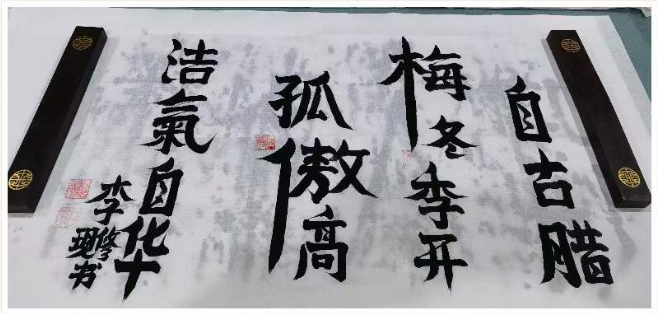 自古腊
梅冬季开
孤傲高
洁氣自华
李修现书